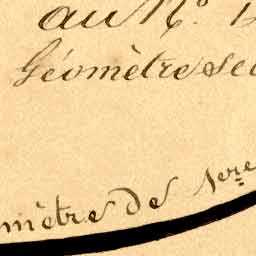 au N.º
Géomètre
mètre de 1ere